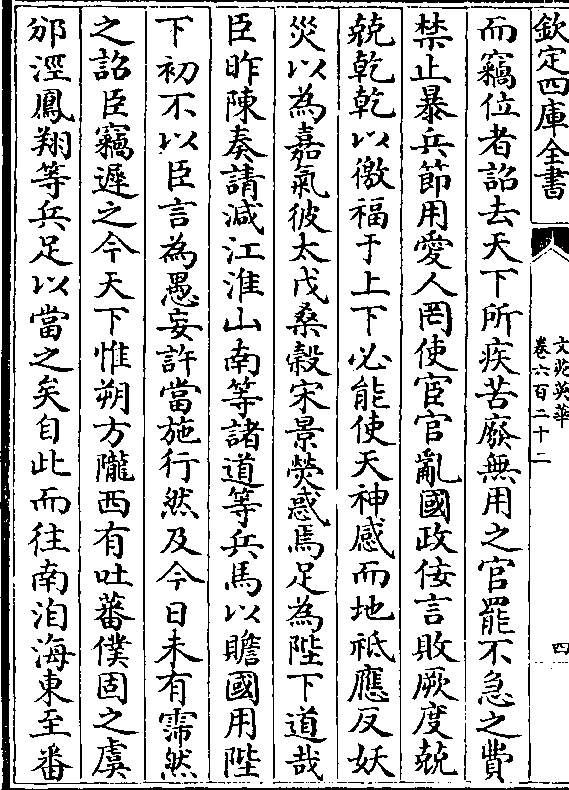 欽定四庫全書
文苑英華
卷六百二十二
四
而竊位者詔去天下所疾苦廢無用之官罷不急之費
禁止暴兵節用愛人罔使宦官亂國政佞言敗厥度兢
兢乾乾以徼福于上下必能使天神感而地祇應反妖
災以為嘉氣彼太戊桑榖宋景熒惑焉足為陛下道哉
臣昨陳奏請減江淮山南等諸道等兵馬以贍國用陛
下初不以臣言為愚妄許當施行然及今日未有霈然
之詔臣竊遲之今天下惟朔方隴西有吐蕃僕固之虞
邠涇鳳翔等兵足以當之矣自此而往南洎海東至番